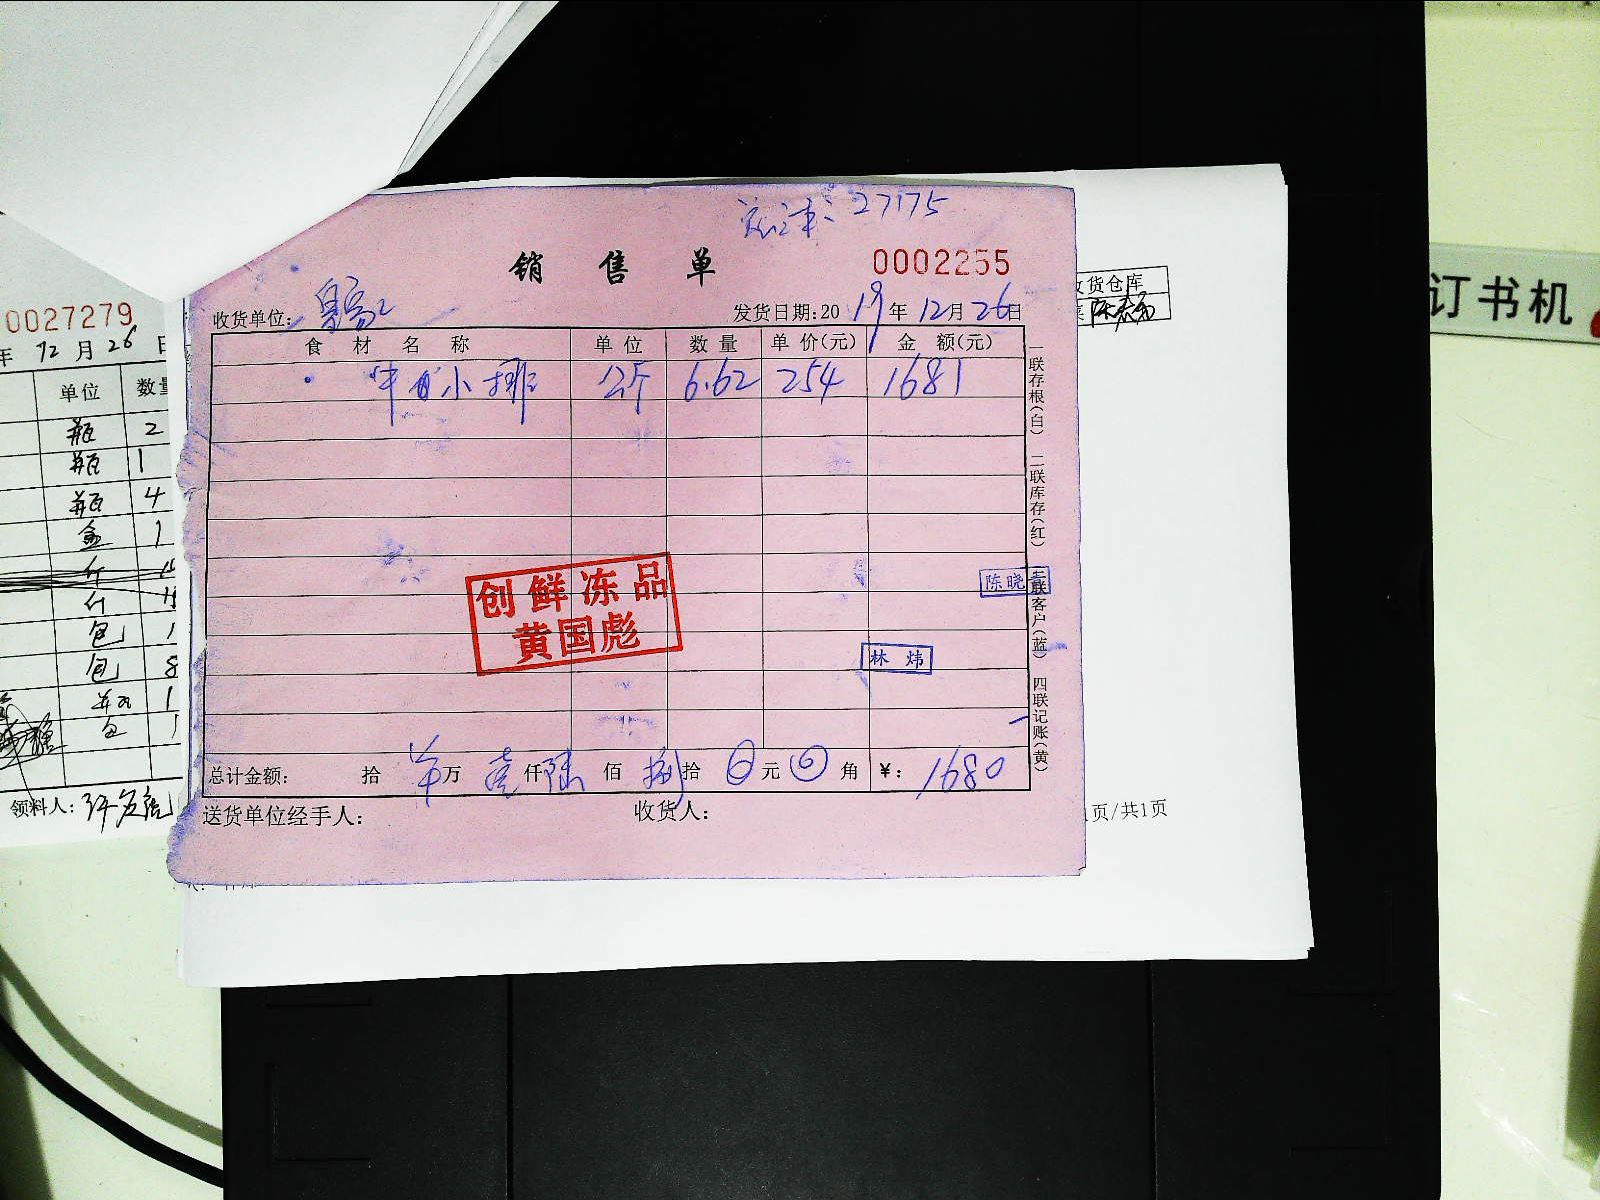 27175
销售单
0002255
收货单位:
发货日期:2019年12月26日
食材名称 单位 数量 单价(元) 金额(元)
牛仔小排 公斤 6.62 254 1681
创鲜冻品
黄国彪
陈晓
林炜
总计金额: 拾 万 壹仟陆佰捌拾 0元 0角 ¥: 1680
送货单位经手人: 收货人:
一联存根(白) 二联库存(红) 三联客户(蓝) 四联记账(黄)
00027279
年 12月26日
单位 数量
瓶 2
瓶 1
瓶 4
盒 1
斤
斤
包 1
包 8
瓶 1
包 1
领料人:
收货仓库
1页/共1页
订书机